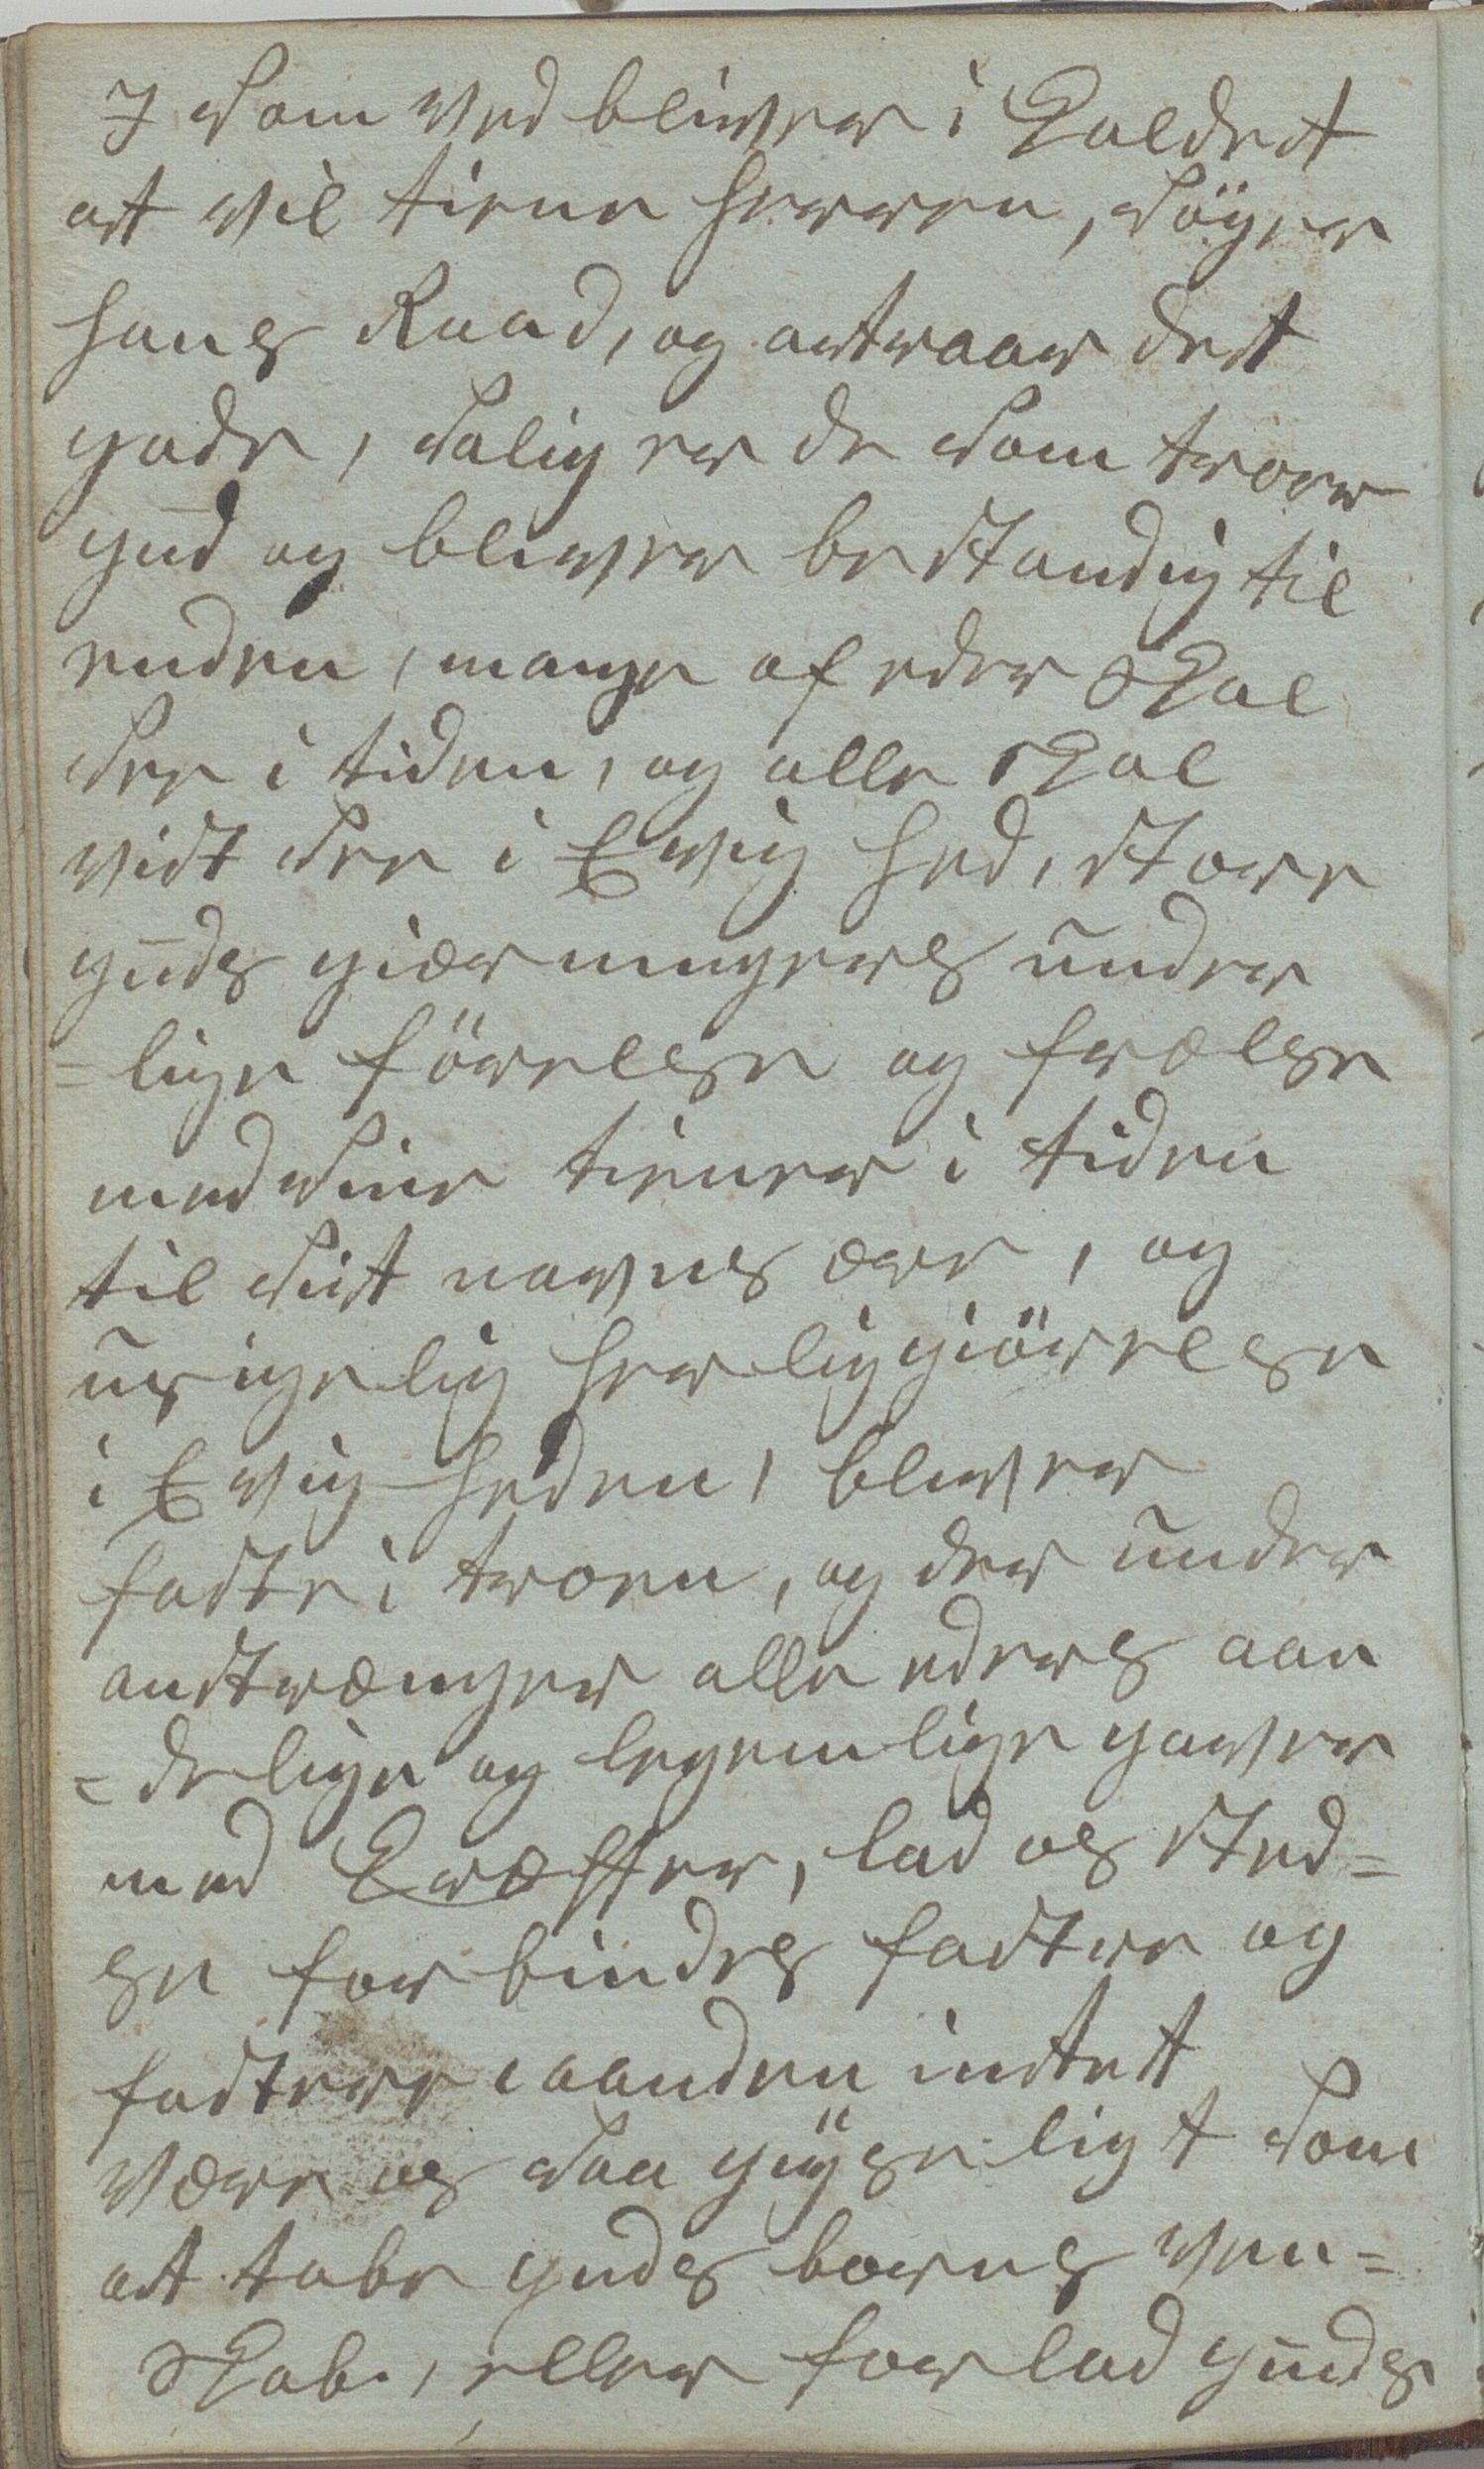 I som ved bliver i Kaldet
at vil tiene herren, søger
hans Raad, og attraar det
gode, salig er de som troer
gud og bliver bestandig til
enden, mange af eder skal
see i tiden, og alle skal
vist see i Evig hed, store
guds giærningers under
=lige förelse og frælse
med sine tiener i tiden
til sit navns ære, og
usigelig herliggiörelse
i Evig heden, bliver
faste i troen, og der under
anstrænger alle eders aan
=delige og legemlige gaver
med Kræffter, lad os sted=
se forbindes faster og
fastere i aanden intet
være os saa gÿseligt som
at tabe guds borns ven=
skab, eller forlad guds